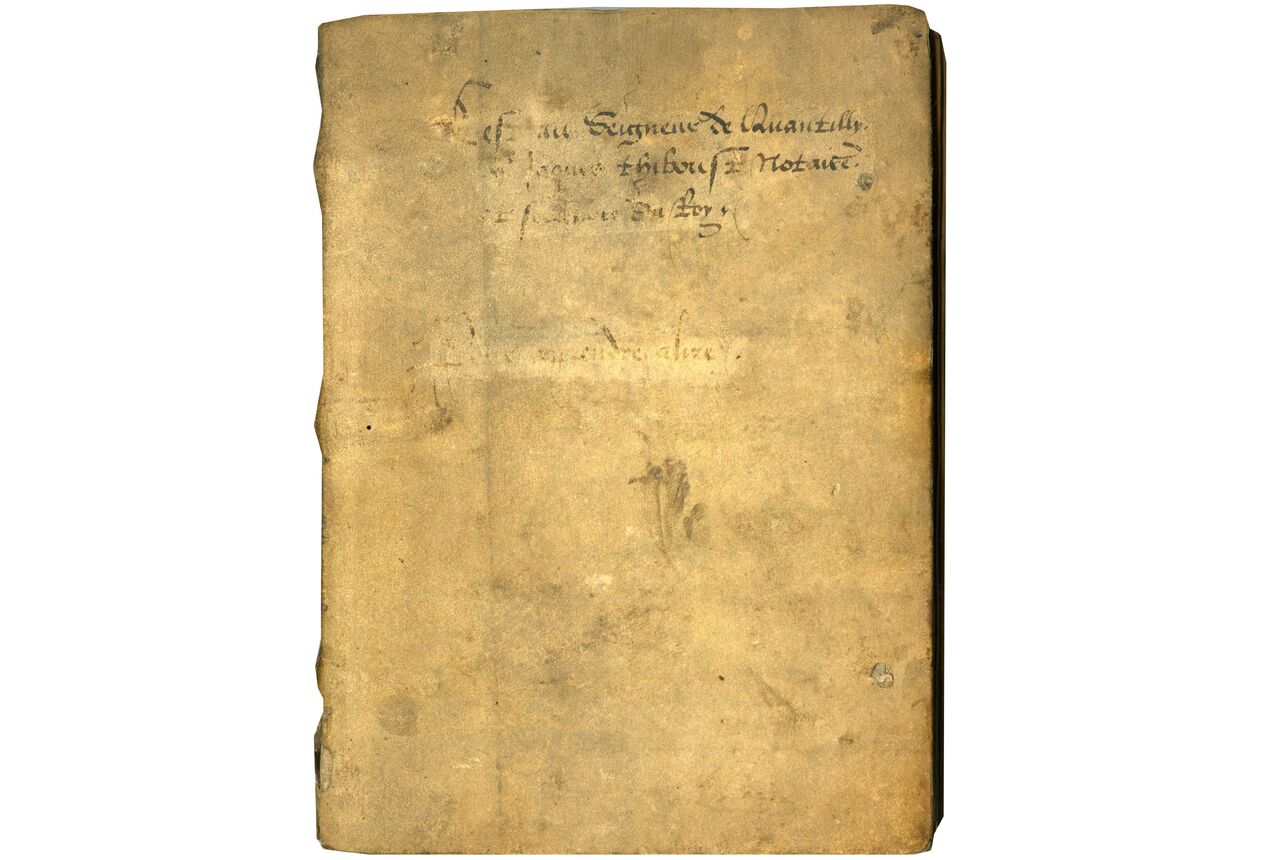 Cest au Seigneur de Quantilly.
Jaques thiboust Notaire.
et secretaire du Roy
apprendre a lire